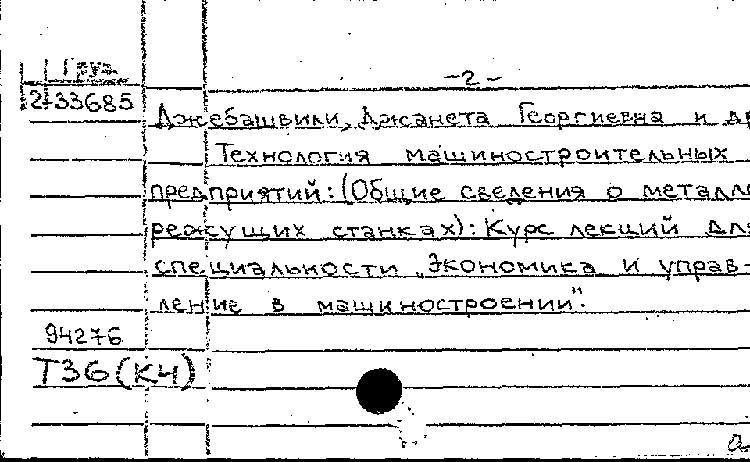 -2-
Груз
2-33685
Джебашвили, Джанета Георгиевна и др
Технология машиностроительных
предприятий: (Общие сведения о металло
режущих станках): Курс лекций для
специальности "Экономика и управ-
ление в машиностроении".
94276
Т36(К4)